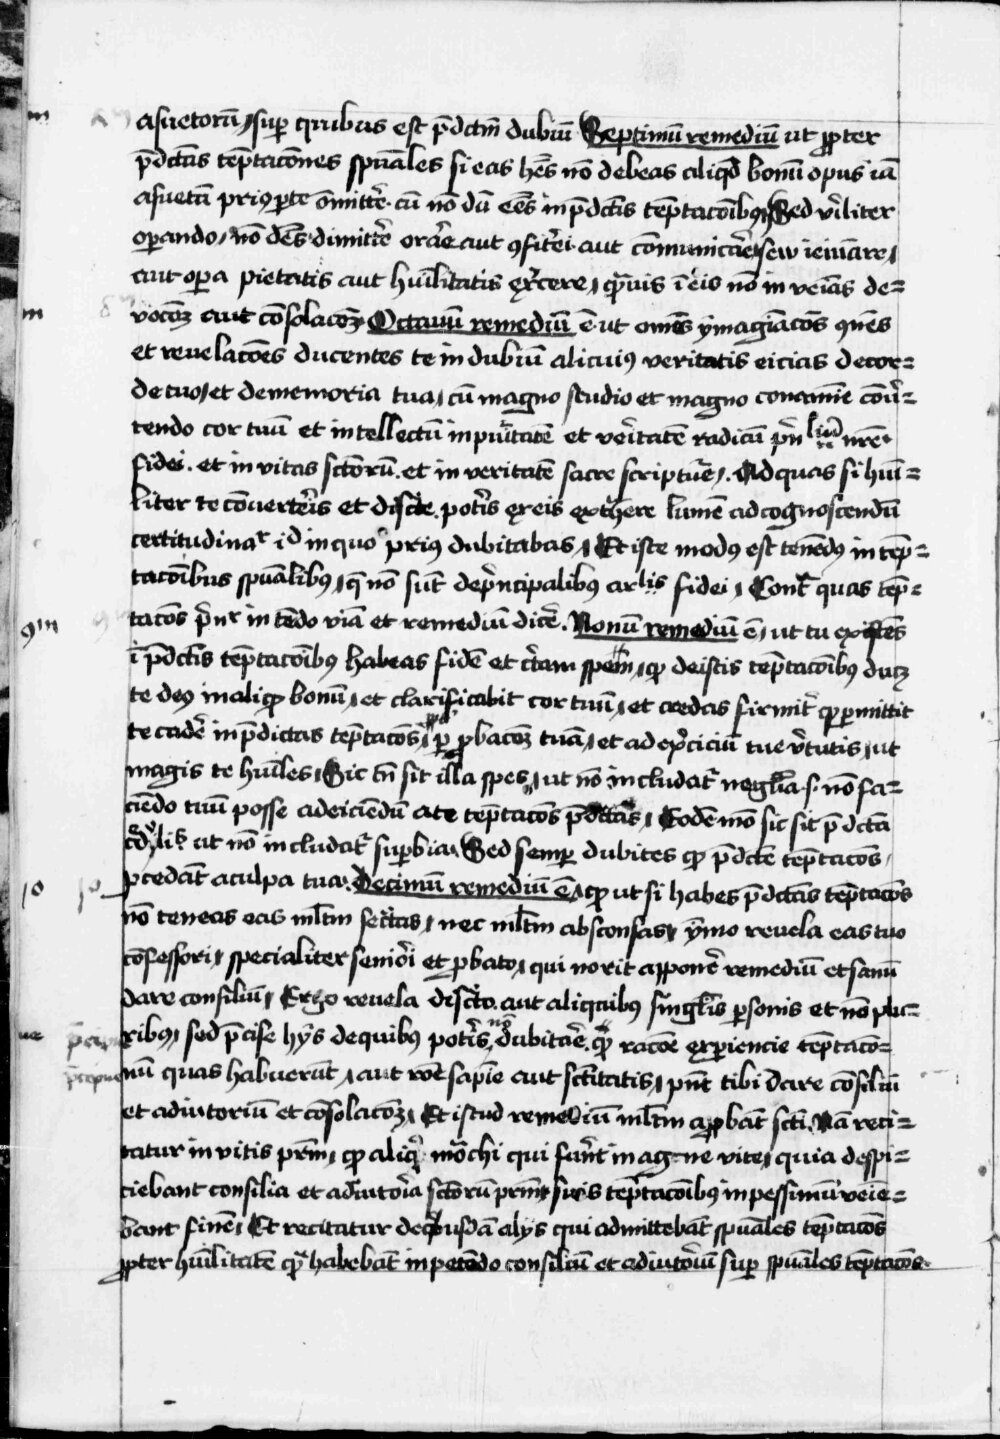 asuetorū, sup quibus est p̄dictū dubiū Septimū remediū ut ꝓpter
p̄dctās tēptacōnes spūales si eas hēs nō debeas aliqd bonū opus iā
asuetū prius p te omitte᷑. cū nō dū ēēs in p̄dctīs tēptacōibꝫ, Sed v̓iliter
opando, nō dēs dimitte᷑ orāe aut ꝯfit̓ei aut cōmunicāe, seu ieiunare,
aut opa pietatis aut huīlitatis ex̓cere, quīuis ī eis nō inveīas de-
vocōꝫ aut cōsolacōꝫ. Octauū remediū ē. ut omēs ymagīacōs
et reuelacōes ducentes te in dubiū alicuiꝰ veritatis eicias de cor-
de tuo, et de memoria tua, cū magno studio et magno conamīe cōv̓-
tendo cor tuū et intellectū in puritatē et veritatē
fidei. et in vitas sctōrū. et in veritatē sacre scripture. Ad quas si huī-
liter te cōuerteris et discte. potis ex eis ext̓here lumē ad cognoscendū
certitudinar id in quo prius dubitabas, Et iste modꝰ est tenēdꝰ in tēp-
tacōibus spūalibꝰ, q̄ nō sūt de p̓ncipalibꝰ arlis fidei, Cont̓ quas tēp-
tacōs p̄nr intēdo viā et remediū dicē. Nonū remediū ē, ut tu existēs
ī p̄dctīs tēptacōibꝰ habeas fidē et c̓tam spem, qꝫ de istis tēptacōibꝰ ducꝫ
te deꝰ in aliqꝫ bonū, et clarificabit cor tuū, et credas firmit̓ qꝫ pmittit
te cadē in p̄dictas tēptacōs, p ꝓbacōꝫ tuā, et ad ex̓ciciū tue v̓tutis, ut
magis te huīles, Sic tn̄ sit illa spes, ut nō includat̓ neglīa. s. nō fa-
ciēdo tuū posse ad eiciēdū a te tēptacōs p̄dctās, Eodē mō sic sit p̄dcta
ut nō includat̓ supbia. Sed semp dubites qꝫ p̄dctē tēptacōs,
ꝓcedāt a culpa tua. Decimū remediū ē, qꝫ ut si habes p̄dctās tēptacōs
nō teneas eas mltm sec̓tas, nec mltm absconsas, ymo reuela eas tuo
cōfessori, specialiter seniori et ꝓbato, qui norit apponē remediū et sanū
dare consiliū, Ergo reuela discto. aut aliquibus singlis psonis et nō plu-
ribus, sed p̄cise hys de quibus potis nō dubitāe. qꝫ racōe experiencie tēptaco-
nū quas habuerūt, aut rōe sapīe aut sctītatis, pn̄t tibi dare cōsiliū
et adiutoriū et cōsolacōꝫ, Et istud remediū mltm aꝓbāt scti. Nā reci-
tatur in vitis prm, qꝫ aliq̓ mōchi qui fuerūt in magne vite, quia despi-
ciebant consilia et adiutoria sctōrū prm, suis tēptacōibꝰ in pessimū veīe-
bant finē, Et recitatur de q̓busdā alys qui admittebāt spūales tēptacōs
ꝓpter huīlitatē qꝫ habebāt in petēdo consiliū et adiutoriū sup spūales tēptacōs.